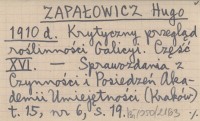 ZAPAŁOWICZ Hugo
1910 d. Krytyczny przegląd
roślinności Galicyi. Część
XVI. — Sprawozdania z
Czynności i Posiedzeń Aka-
demii Umiejętności (Kraków)
t. 15, nr 6, s. 19.